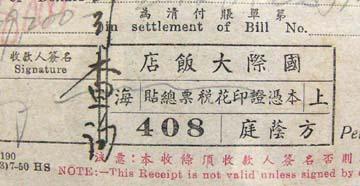 為清付賬單第
in settlement of Bill No.
收款人簽名
Signature
國際大飯店
上海
本憑證印花稅票總貼
方蔭庭
408
190
7-50 HS
注意：本收條須收款人簽名否則
NOTE:—This Receipt is not valid unless signed by